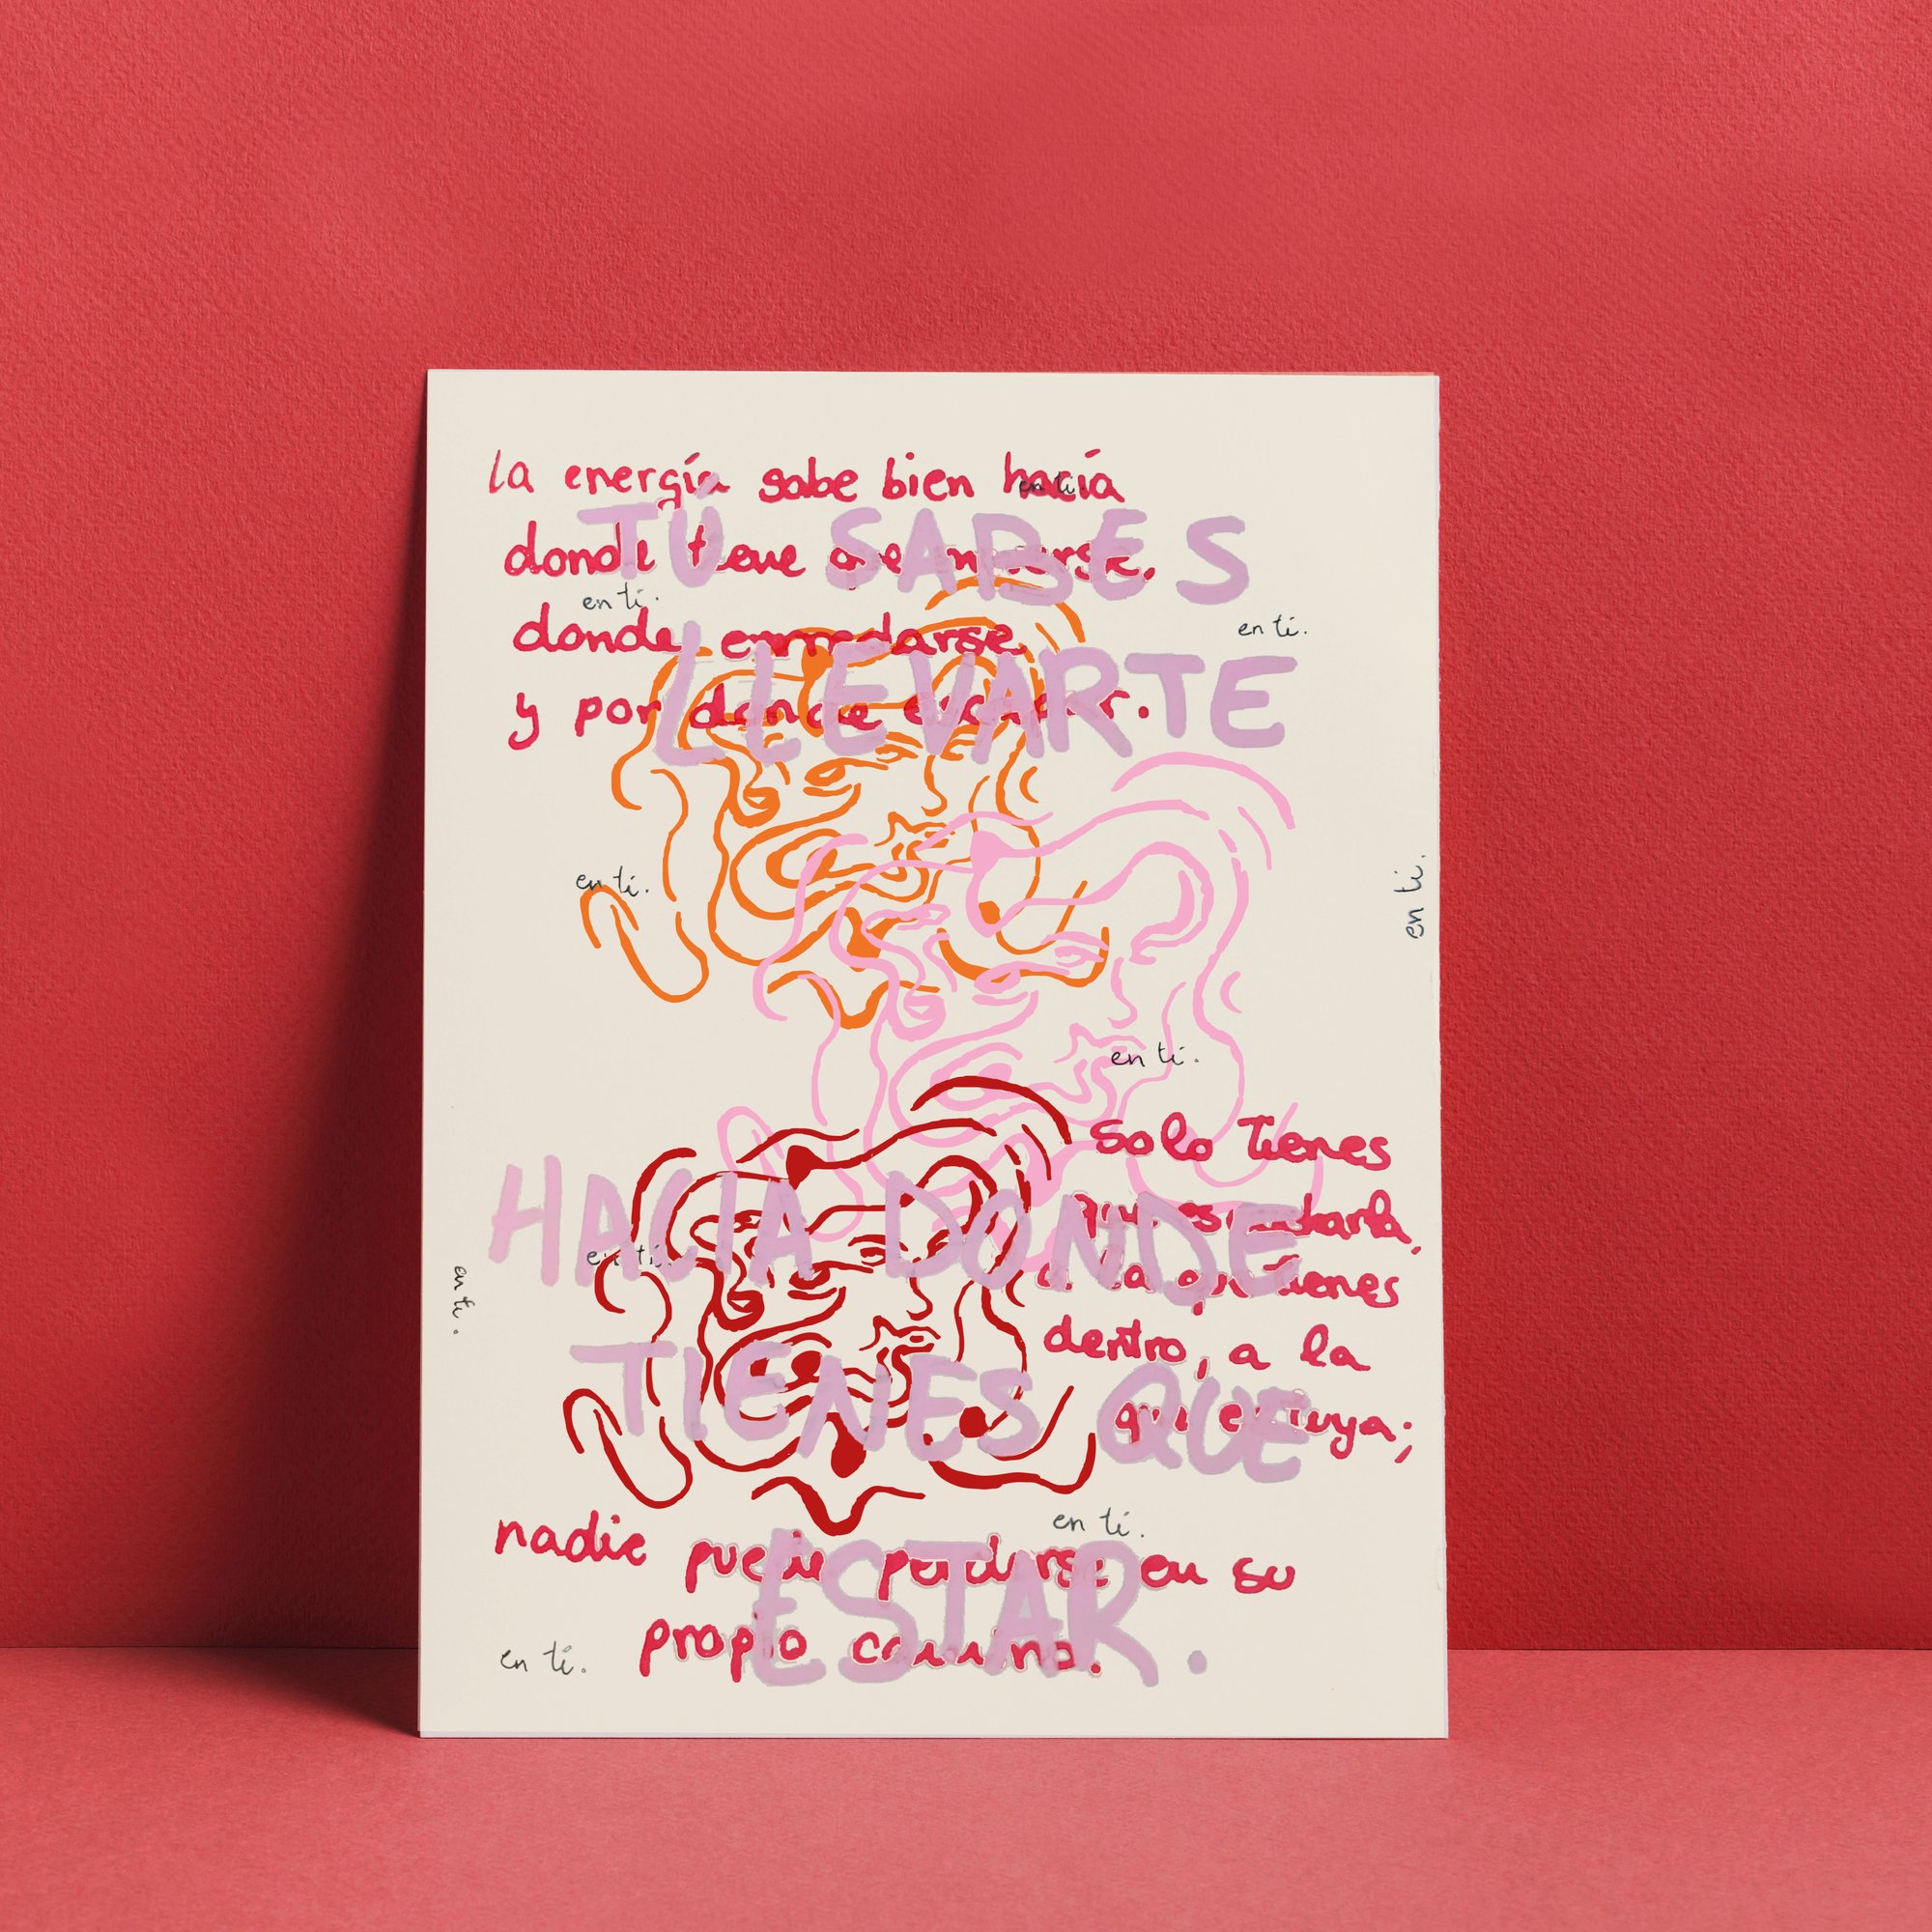 la energía sabe bien hacía
en ti.
TÚ SABES
donde tiene que moverse,
en ti.
en ti.
donde enrredarse
LLEVARTE
y por donde escapar.
en ti.
en ti.
en ti.
solo tienes
HACIA DONDE
que escucharla,
en ti.
a la que tienes
en ti.
dentro, a la
TIENES QUE
que es tuya;
en ti.
nadie puede perderse en su
ESTAR.
propio camino.
en ti.